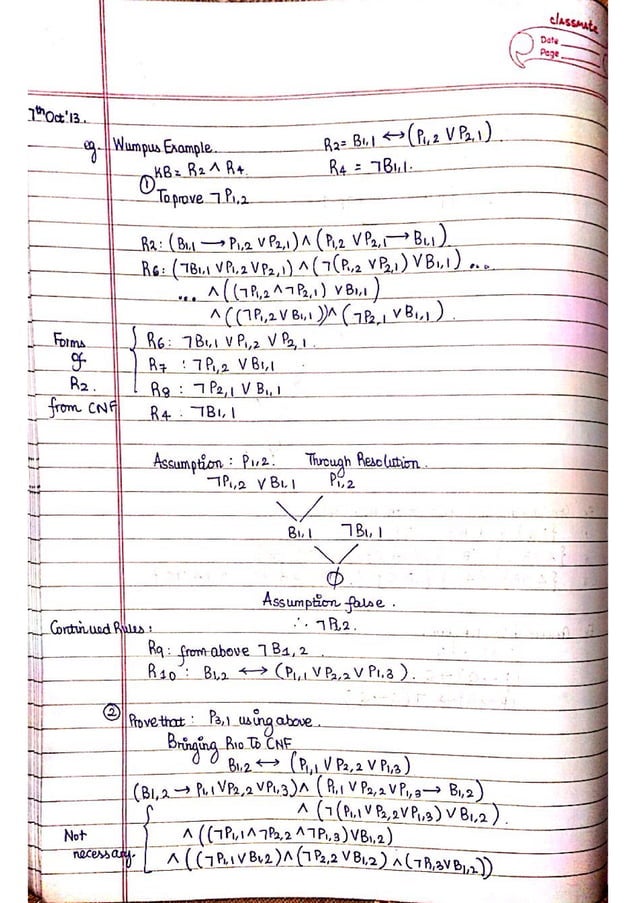 classmate
Date
Page
7th Oct'13.
eg. Wumpus Example. R2 = B1,1 ↔ (P1,2 ∨ P2,1)
KB = R2 ∧ R4. R4 = ¬B1,1.
① To prove ¬P1,2
R2: (B1,1 → P1,2 ∨ P2,1) ∧ (P1,2 ∨ P2,1 → B1,1)
R6: (¬B1,1 ∨ P1,2 ∨ P2,1) ∧ (¬(P1,2 ∨ P2,1) ∨ B1,1) ...
... ∧ ((¬P1,2 ∧ ¬P2,1) ∨ B1,1)
∧ ((¬P1,2 ∨ B1,1)) ∧ (¬P2,1 ∨ B1,1).
Forms of R2. from CNF
R6: ¬B1,1 ∨ P1,2 ∨ P2,1.
R7: ¬P1,2 ∨ B1,1
R8: ¬P2,1 ∨ B1,1
R4. ¬B1,1
Assumption: P1,2. Through Resolution.
¬P1,2 ∨ B1,1 P1,2
B1,1 ¬B1,1
∅
Assumption false.
∴ ¬P1,2.
Continued Rules:
R9: from above ¬B1,2
R10: B1,2 ↔ (P1,1 ∨ P2,2 ∨ P1,3).
② Prove that: P3,1 using above.
Bringing R10 To CNF
B1,2 ↔ (P1,1 ∨ P2,2 ∨ P1,3)
(B1,2 → P1,1 ∨ P2,2 ∨ P1,3) ∧ (P1,1 ∨ P2,2 ∨ P1,3 → B1,2)
∧ (¬(P1,1 ∨ P2,2 ∨ P1,3) ∨ B1,2).
Not necessary.
∧ ((¬P1,1 ∧ ¬P2,2 ∧ ¬P1,3) ∨ B1,2)
∧ ((¬P1,1 ∨ B1,2) ∧ (¬P2,2 ∨ B1,2) ∧ (¬P1,3 ∨ B1,2))